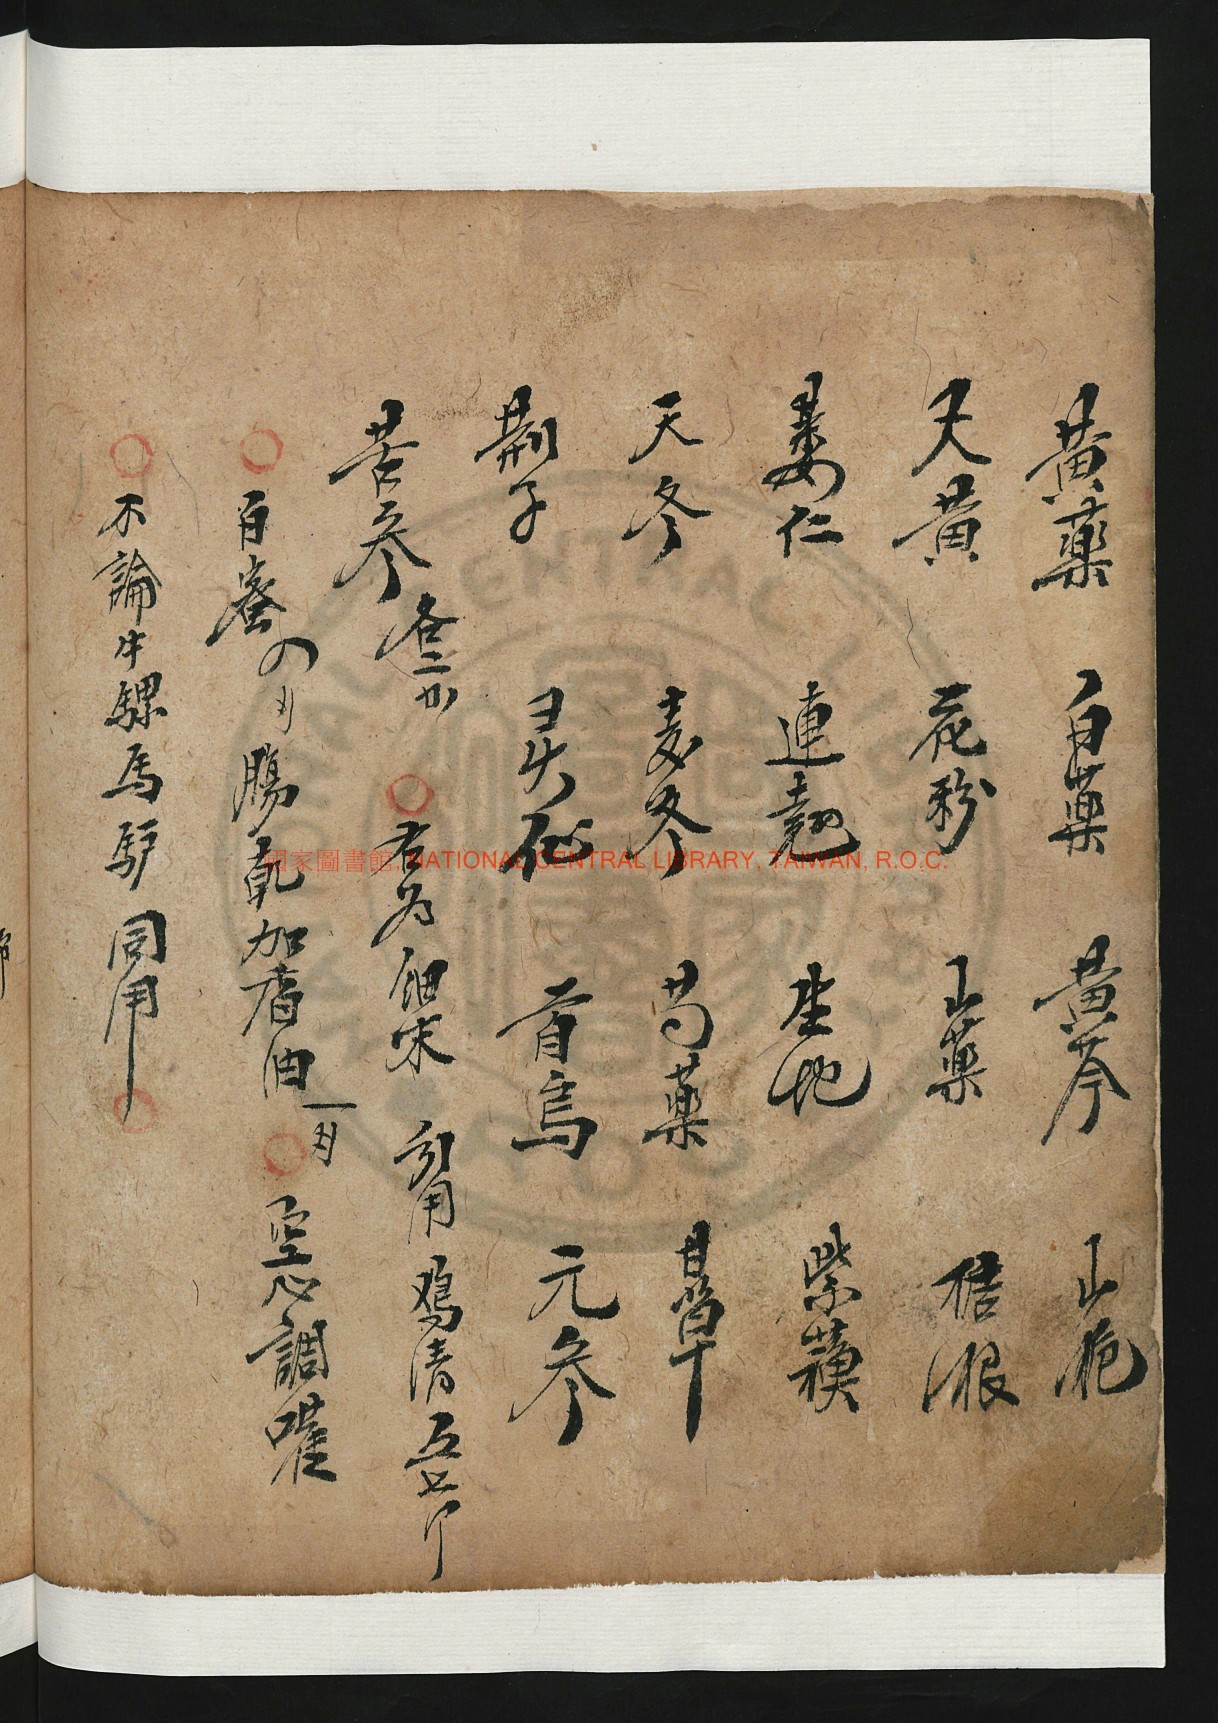 黃藥 白藥 黃芩 山栀
大黃 花粉 山藥 桔根
蔞仁 連翹 生地 紫蘇
天冬 麦冬 芍藥 甘草
荆子 灵仙 首烏 元参
苦参 各二
○右为細末 引用鸡清五七个
○百蜜 腸乾加香油一 ○空心調嚾
○不論牛騾馬驴同用○
國家圖書館, NATIONAL CENTRAL LIBRARY, TAIWAN, R.O.C.